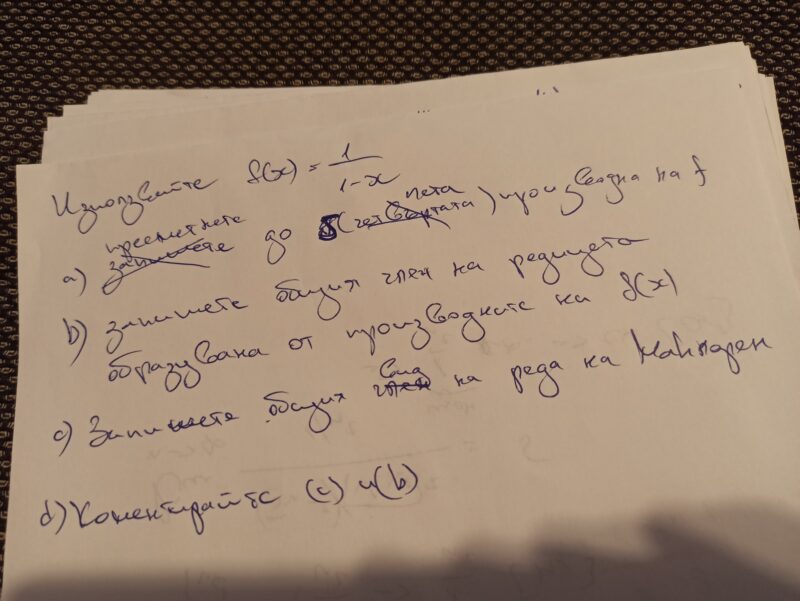 Използвайте f(x) = 1/(1-x)
a) пресметнете до 5 (пета) производна на f
b) запишете общия член на редицата
образувана от производните на f(x)
c) Запишете общия вид на реда на Маклорен
d) Коментирайте (c) и (b)